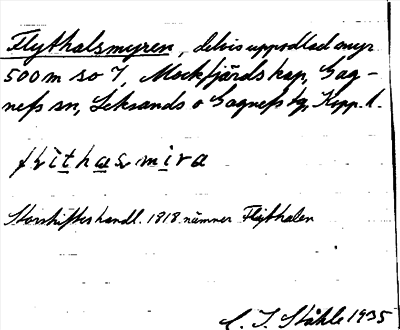 Flythalsmyren, delvis uppodlad myr
500 m so f, Mockfjärds kap, Gag-
nefs sn, Leksands o Gagnefs tg, Kopp. l.
Storskifteshandl. 1818 nämner Flythalen
C. I. Ståhle 1935